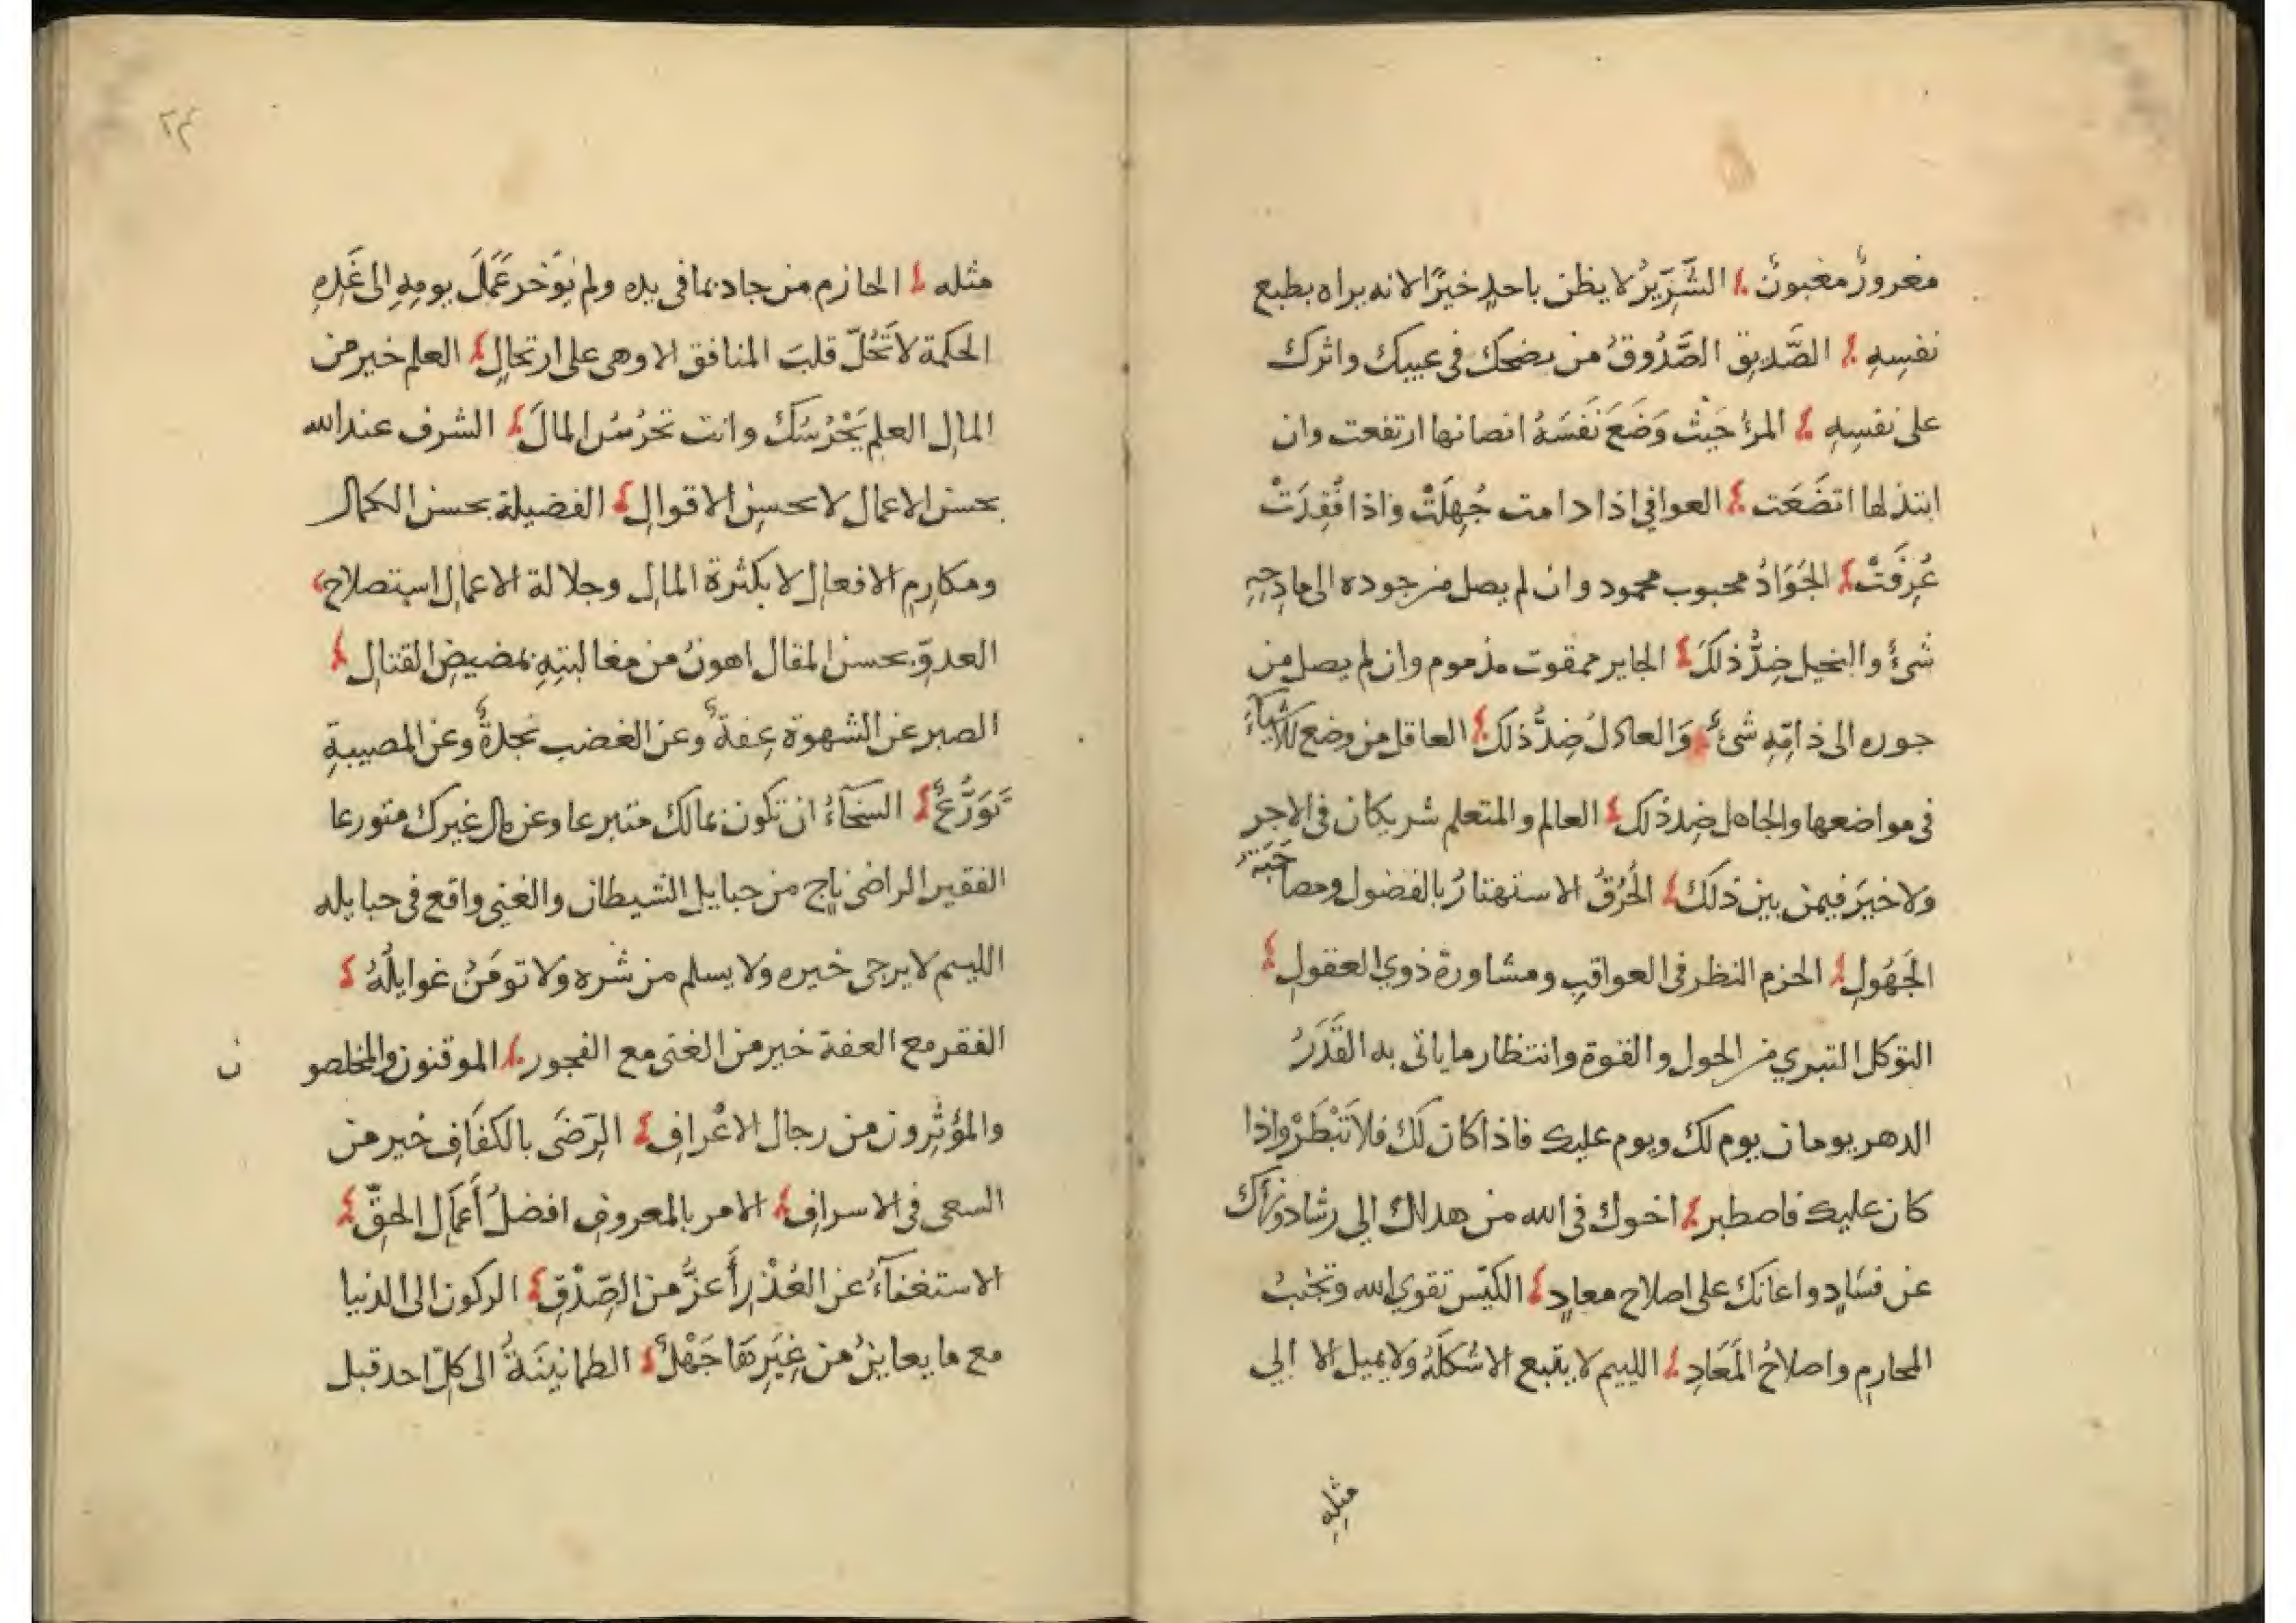 مغرورٌ مغبونٌ ؛ الشَّرِّيرُ لا يظن باحدٍ خيرًا لانه يراه بطبع
نفسِهِ ؛ الصَّديق الصَّدُوقُ من نصحك فى عيبك واثرك
على نفسِهِ ؛ المرءُ حَيْثُ وَضَعَ نَفسَهُ ان صانها ارتفعت وان
ابتذلها اتضَعَت ؛ العوافي اذا دامت جُهِلَتْ واذا فُقِدَتْ
عُرِفَتْ ؛ الجَوَادُ محبوب محمود وان لم يصل من جوده الى مادِحِهِ
شئٌ والبخيل ضِدُّ ذلكَ ؛ الجاير ممقوت مذموم وان لم يصل من
جوره الى ذامِّهِ شئٌ وَالعادلُ ضِدُّ ذلكَ ؛ العاقل من وضع الاشياءَ
فى مواضعها والجاهل ضِد ذلك ؛ العالم والمتعلم شريكان فى الاجرِ
ولا خيرَ فيمن بين ذلكَ ؛ الخُرْقُ الاستهتارُ بالفضول ومصاحَبَة
الجَهُولِ ؛ الحزم النظر فى العواقبِ ومشاورة ذوي العقولِ ؛
التوكل التبري من الحول والقوة وانتظار ما ياتى به القَدَرُ
الدهر يومان يوم لك ويوم عليك فاذا كان لكَ فلا تَبْطَرْ واذا
كان عليك فاصطبر ؛ اخوك فى الله من هداك الي رشاد ونهاك
عن فسَادٍ واعانك على اصلاح معادٍ ؛ الكيّس تقوي الله وتجنبُ
المحارمِ واصلاحُ المَعَادِ ؛ اللييم لا يتبع الا شكلَهُ ولا يميل الا الي
مثلِهِ
٢٣
مثله ؛ الحازم من جاد بما فى يده ولم يؤخر عَمَلَ يومِهِ الى غَدِهِ
الحكمة لا تَحُلّ قلبَ المنافق الا وهى على ارتحالٍ ؛ العلم خير من
المالِ العلم يَحْرُسُكَ وانت تحرُسُ المالَ ؛ الشرف عند الله
بحسن الاعمال لا بحسنِ الاقوالِ ؛ الفضيلة بحسن الكمال
ومكارمِ الافعالِ لا بكثرة المالِ وجلالة الاعمالِ استصلاح
العدوّ بحسن المقال اهونُ من مغالبتِهِ بمضيضِ القتالِ ؛
الصبر عن الشهوة عِفةٌ وعن الغضب نجدةٌ وعن المصيبةِ
تَوَرُّعٌ ؛ السخآءُ ان تكون بمالك متبرعا وعن مال غيرك متورعا
الفقير الراضى ناجٍ من حبايلِ الشيطان والغنى واقع فى حبايله
اللييم لا يرجى خيره ولا يسلم من شره ولا تومَنُ غوايلُهُ ؛
الفقر مع العفة خير من الغنى مع الفجور ؛ الموقنون والمخلصون
والمؤثِرون من رجال الاعْرافِ ؛ الرّضَى بالكفَافِ خير من
السعى فى الاسرافِ ؛ الامر بالمعروفِ افضلُ أَعمَالِ الحقِّ ؛
الاستغنآءُ عن العُذْرِ أَعزُّ من الصِّدْقِ ؛ الركون الى الدنيا
مع ما يعاينُ من غِيَرِهَا جَهْلٌ ؛ الطمانينَةُ الى كلّ احد قبل